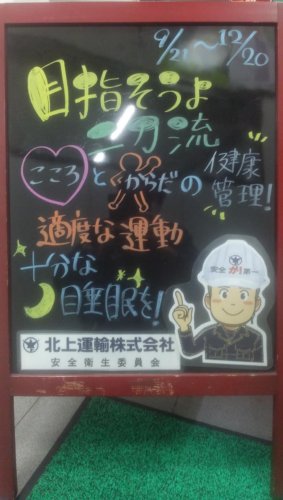 9/21～12/20
目指そうよ
二刀流
こころとからだの
健康
管理!
適度な運動
十分な
睡眠を!
安全が!第一
北上運輸株式会社
安全衛生委員会